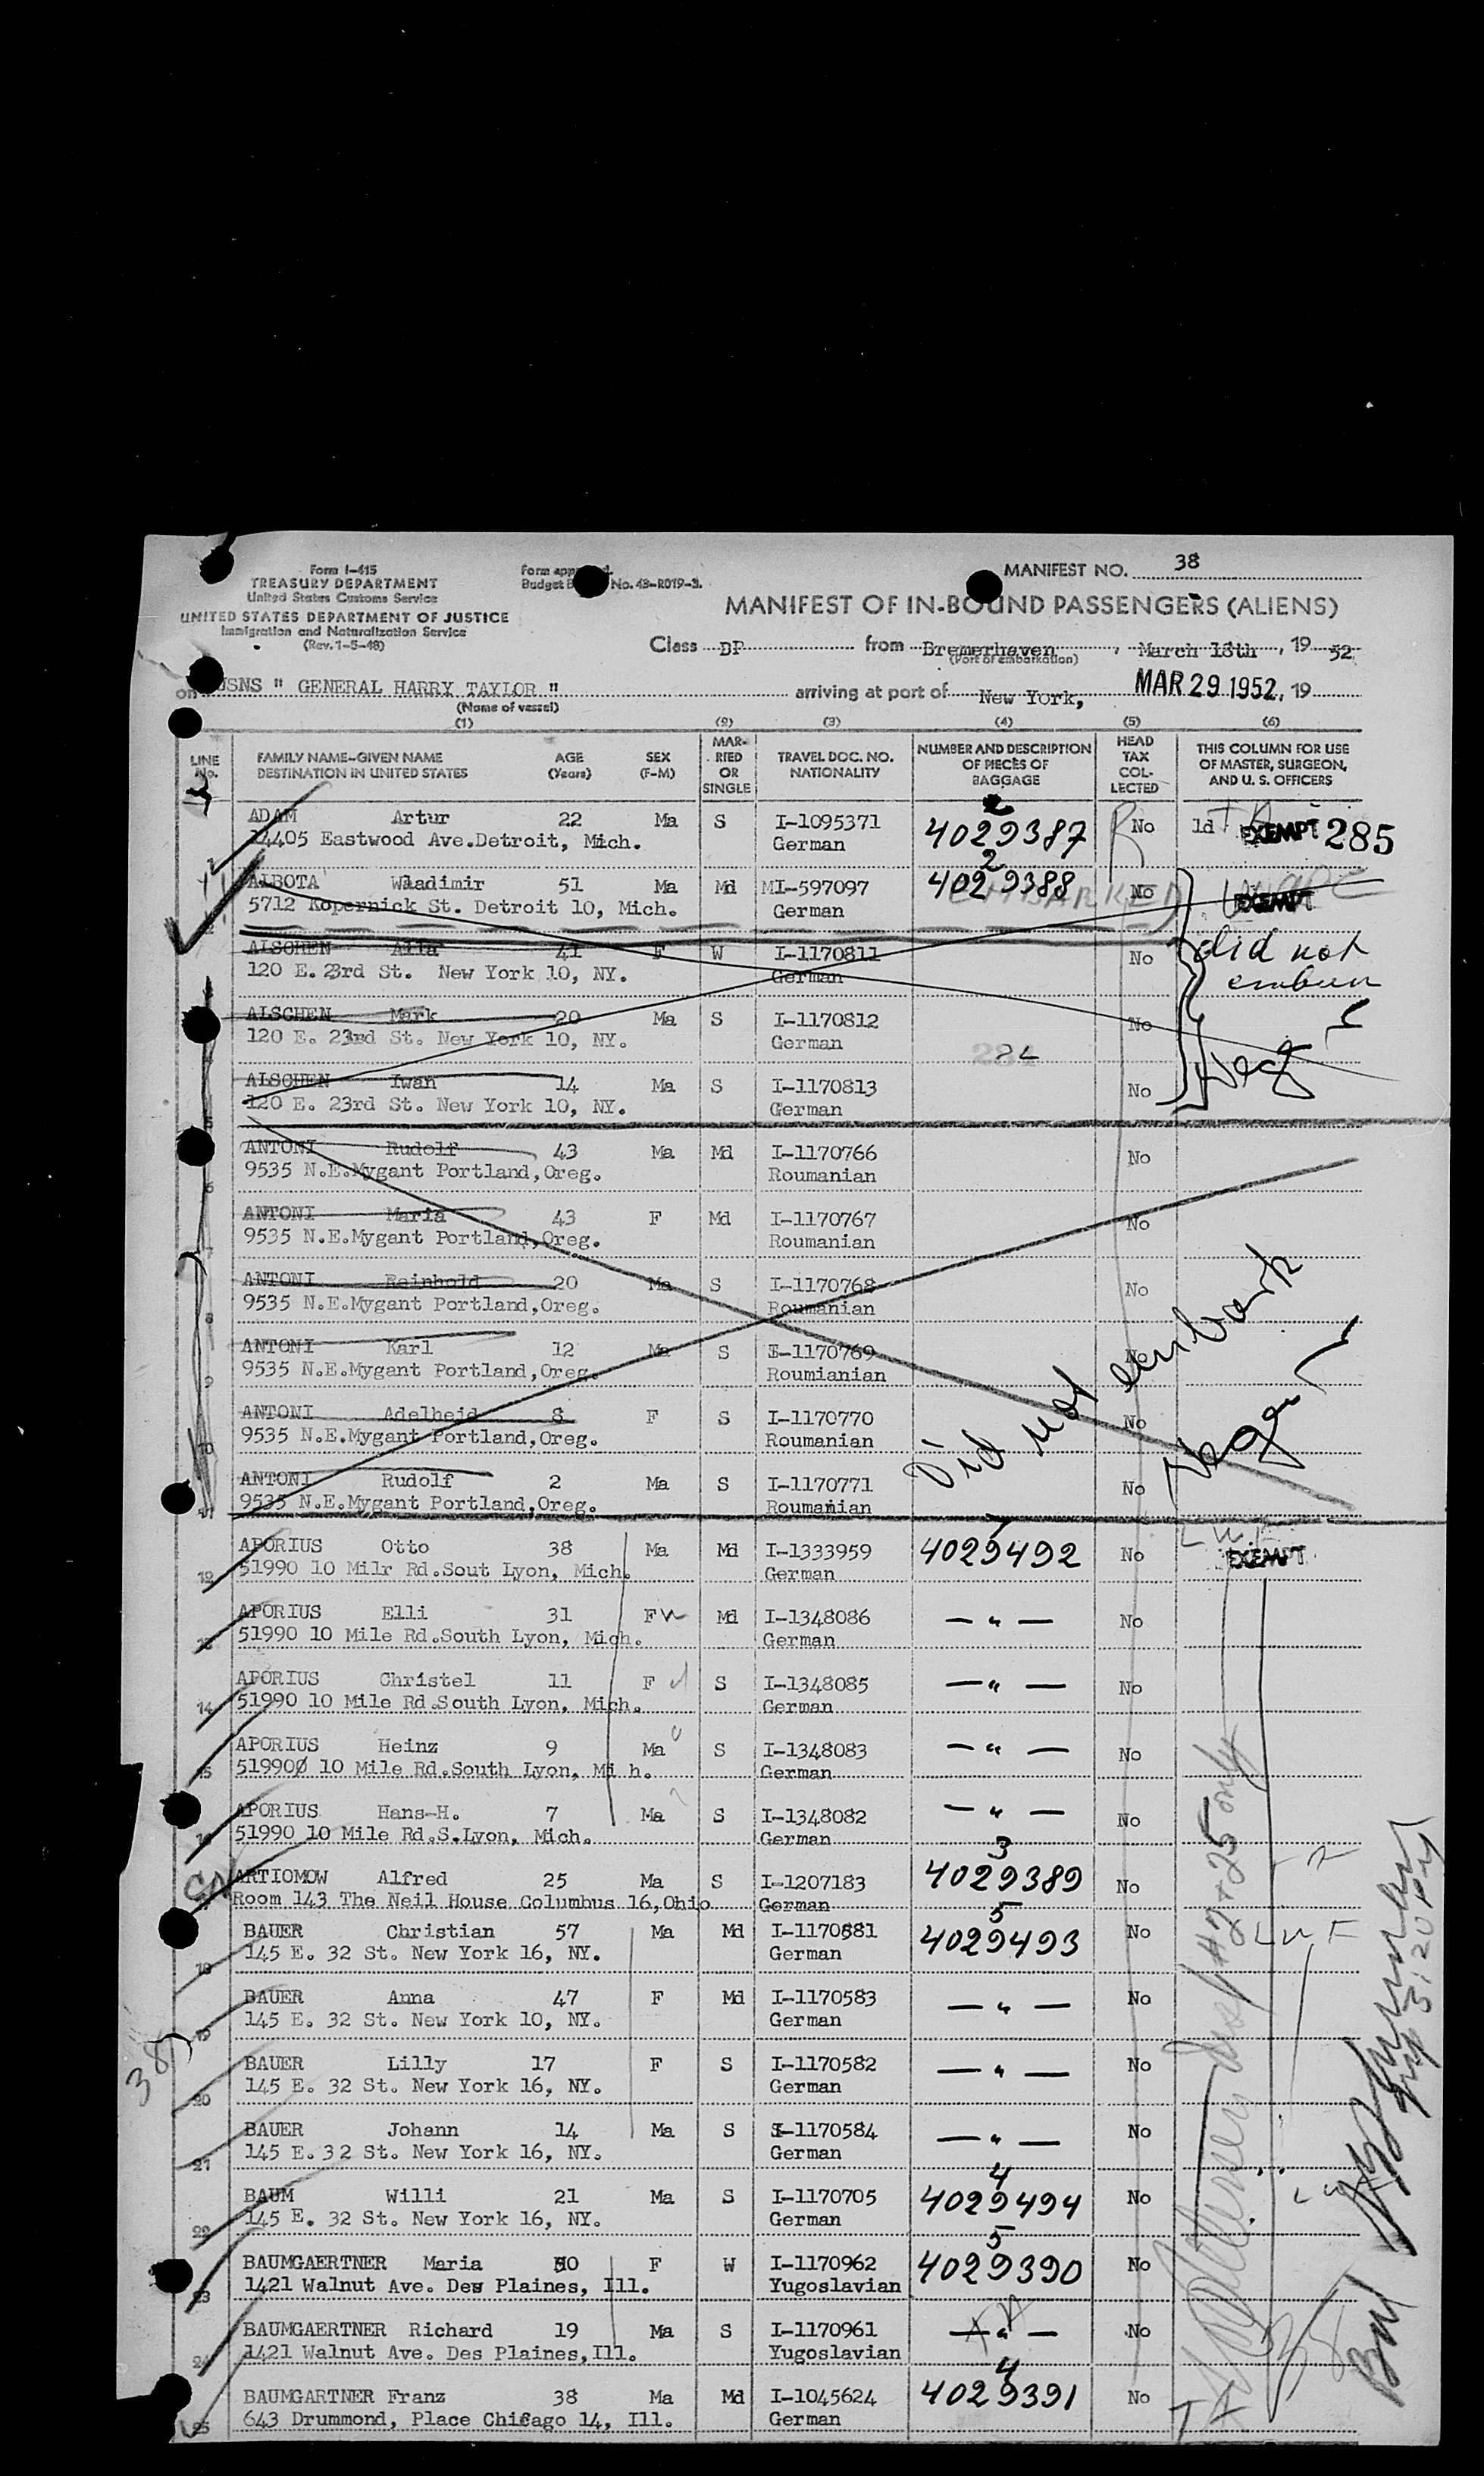 Form I-415
TREASURY DEPARTMENT
United States Customs Service
UNITED STATES DEPARTMENT OF JUSTICE
Immigration and Naturalization Service
(Rev. 1-5-48)
Form app
Budget B No. 43-R019-3.
MANIFEST NO. 38
MANIFEST OF IN-BOUND PASSENGERS (ALIENS)
Class DP from Bremerhaven, March 13th, 19 52
(Port of embarkation)
on USNS " GENERAL HARRY TAYLOR " arriving at port of New York, MAR 29 1952, 19
(Name of vessel)
(1) (2) (3) (4) (5) (6)
LINE No.
FAMILY NAME-GIVEN NAME AGE SEX
DESTINATION IN UNITED STATES (Years) (F-M)
MAR-
RIED
OR
SINGLE
TRAVEL DOC. NO.
NATIONALITY
NUMBER AND DESCRIPTION
OF PIECES OF
BAGGAGE
HEAD
TAX
COL-
LECTED
THIS COLUMN FOR USE
OF MASTER, SURGEON,
AND U. S. OFFICERS
ADAM Artur 22 Ma S I-1095371 2 4029387 No 1d EXEMPT 285
14405 Eastwood Ave.Detroit, Mich. German
ALBOTA Wladimir 51 Ma Md MI-597097 2 4029388 No EXEMPT
5712 Kopernick St. Detroit 10, Mich. German
ALSCHEN Alla 41 F W I-1170811 No did not
120 E. 23rd St. New York 10, NY. German
ALSCHEN Mark 20 Ma S I-1170812 No
120 E. 23rd St. New York 10, NY. German
ALSCHEN Iwan 14 Ma S I-1170813 No
120 E. 23rd St. New York 10, NY. German
ANTONI Rudolf 43 Ma Md I-1170766 No
6 9535 N.E.Mygant Portland,Oreg. Roumanian
ANTONI Maria 43 F Md I-1170767 No
7 9535 N.E.Mygant Portland,Oreg. Roumanian
ANTONI Rainhold 20 Ma S I-1170768 No
8 9535 N.E.Mygant Portland,Oreg. Roumanian
ANTONI Karl 12 Ma S I-1170769 No
9 9535 N.E.Mygant Portland,Oreg. Roumianian
ANTONI Adelheid 8 F S I-1170770 No
10 9535 N.E.Mygant Portland,Oreg. Roumanian
ANTONI Rudolf 2 Ma S I-1170771 No
9535 N.E.Mygant Portland,Oreg. Roumanian
Did not embark
APORIUS Otto 38 Ma Md I-1333959 4029492 No EXEMPT
12 51990 10 Milr Rd.Sout Lyon, Mich. German
APORIUS Elli 31 F Md I-1348086 — " — No
13 51990 10 Mile Rd.South Lyon, Mich. German
APORIUS Christel 11 F S I-1348085 — " — No
14 51990 10 Mile Rd.South Lyon, Mich. German
APORIUS Heinz 9 Ma S I-1348083 — " — No
15 519900 10 Mile Rd.South Lyon, Mi h. German
APORIUS Hans-H. 7 Ma S I-1348082 — " — No
16 51990 10 Mile Rd.S.Lyon, Mich. German
ARTIOMOW Alfred 25 Ma S I-1207183 3 4029389 No
Room 143 The Neil House Columbus 16,Ohio German
BAUER Christian 57 Ma Md I-1170581 5 4029493 No LWF
18 145 E. 32 St. New York 16, NY. German
BAUER Anna 47 F Md I-1170583 — " — No
19 145 E. 32 St. New York 10, NY. German
BAUER Lilly 17 F S I-1170582 — " — No
20 145 E. 32 St. New York 16, NY. German
BAUER Johann 14 Ma S I-1170584 — " — No
21 145 E. 32 St. New York 16, NY. German
BAUM Willi 21 Ma S I-1170705 4 4029494 No
22 145 E. 32 St. New York 16, NY. German
BAUMGAERTNER Maria 50 F W I-1170962 5 4029390 No
23 1421 Walnut Ave. Des Plaines, Ill. Yugoslavian
BAUMGAERTNER Richard 19 Ma S I-1170961 — " — No
24 1421 Walnut Ave. Des Plaines,Ill. Yugoslavian
BAUMGARTNER Franz 38 Ma Md I-1045624 4 4029391 No
25 643 Drummond, Place Chicago 14, Ill. German